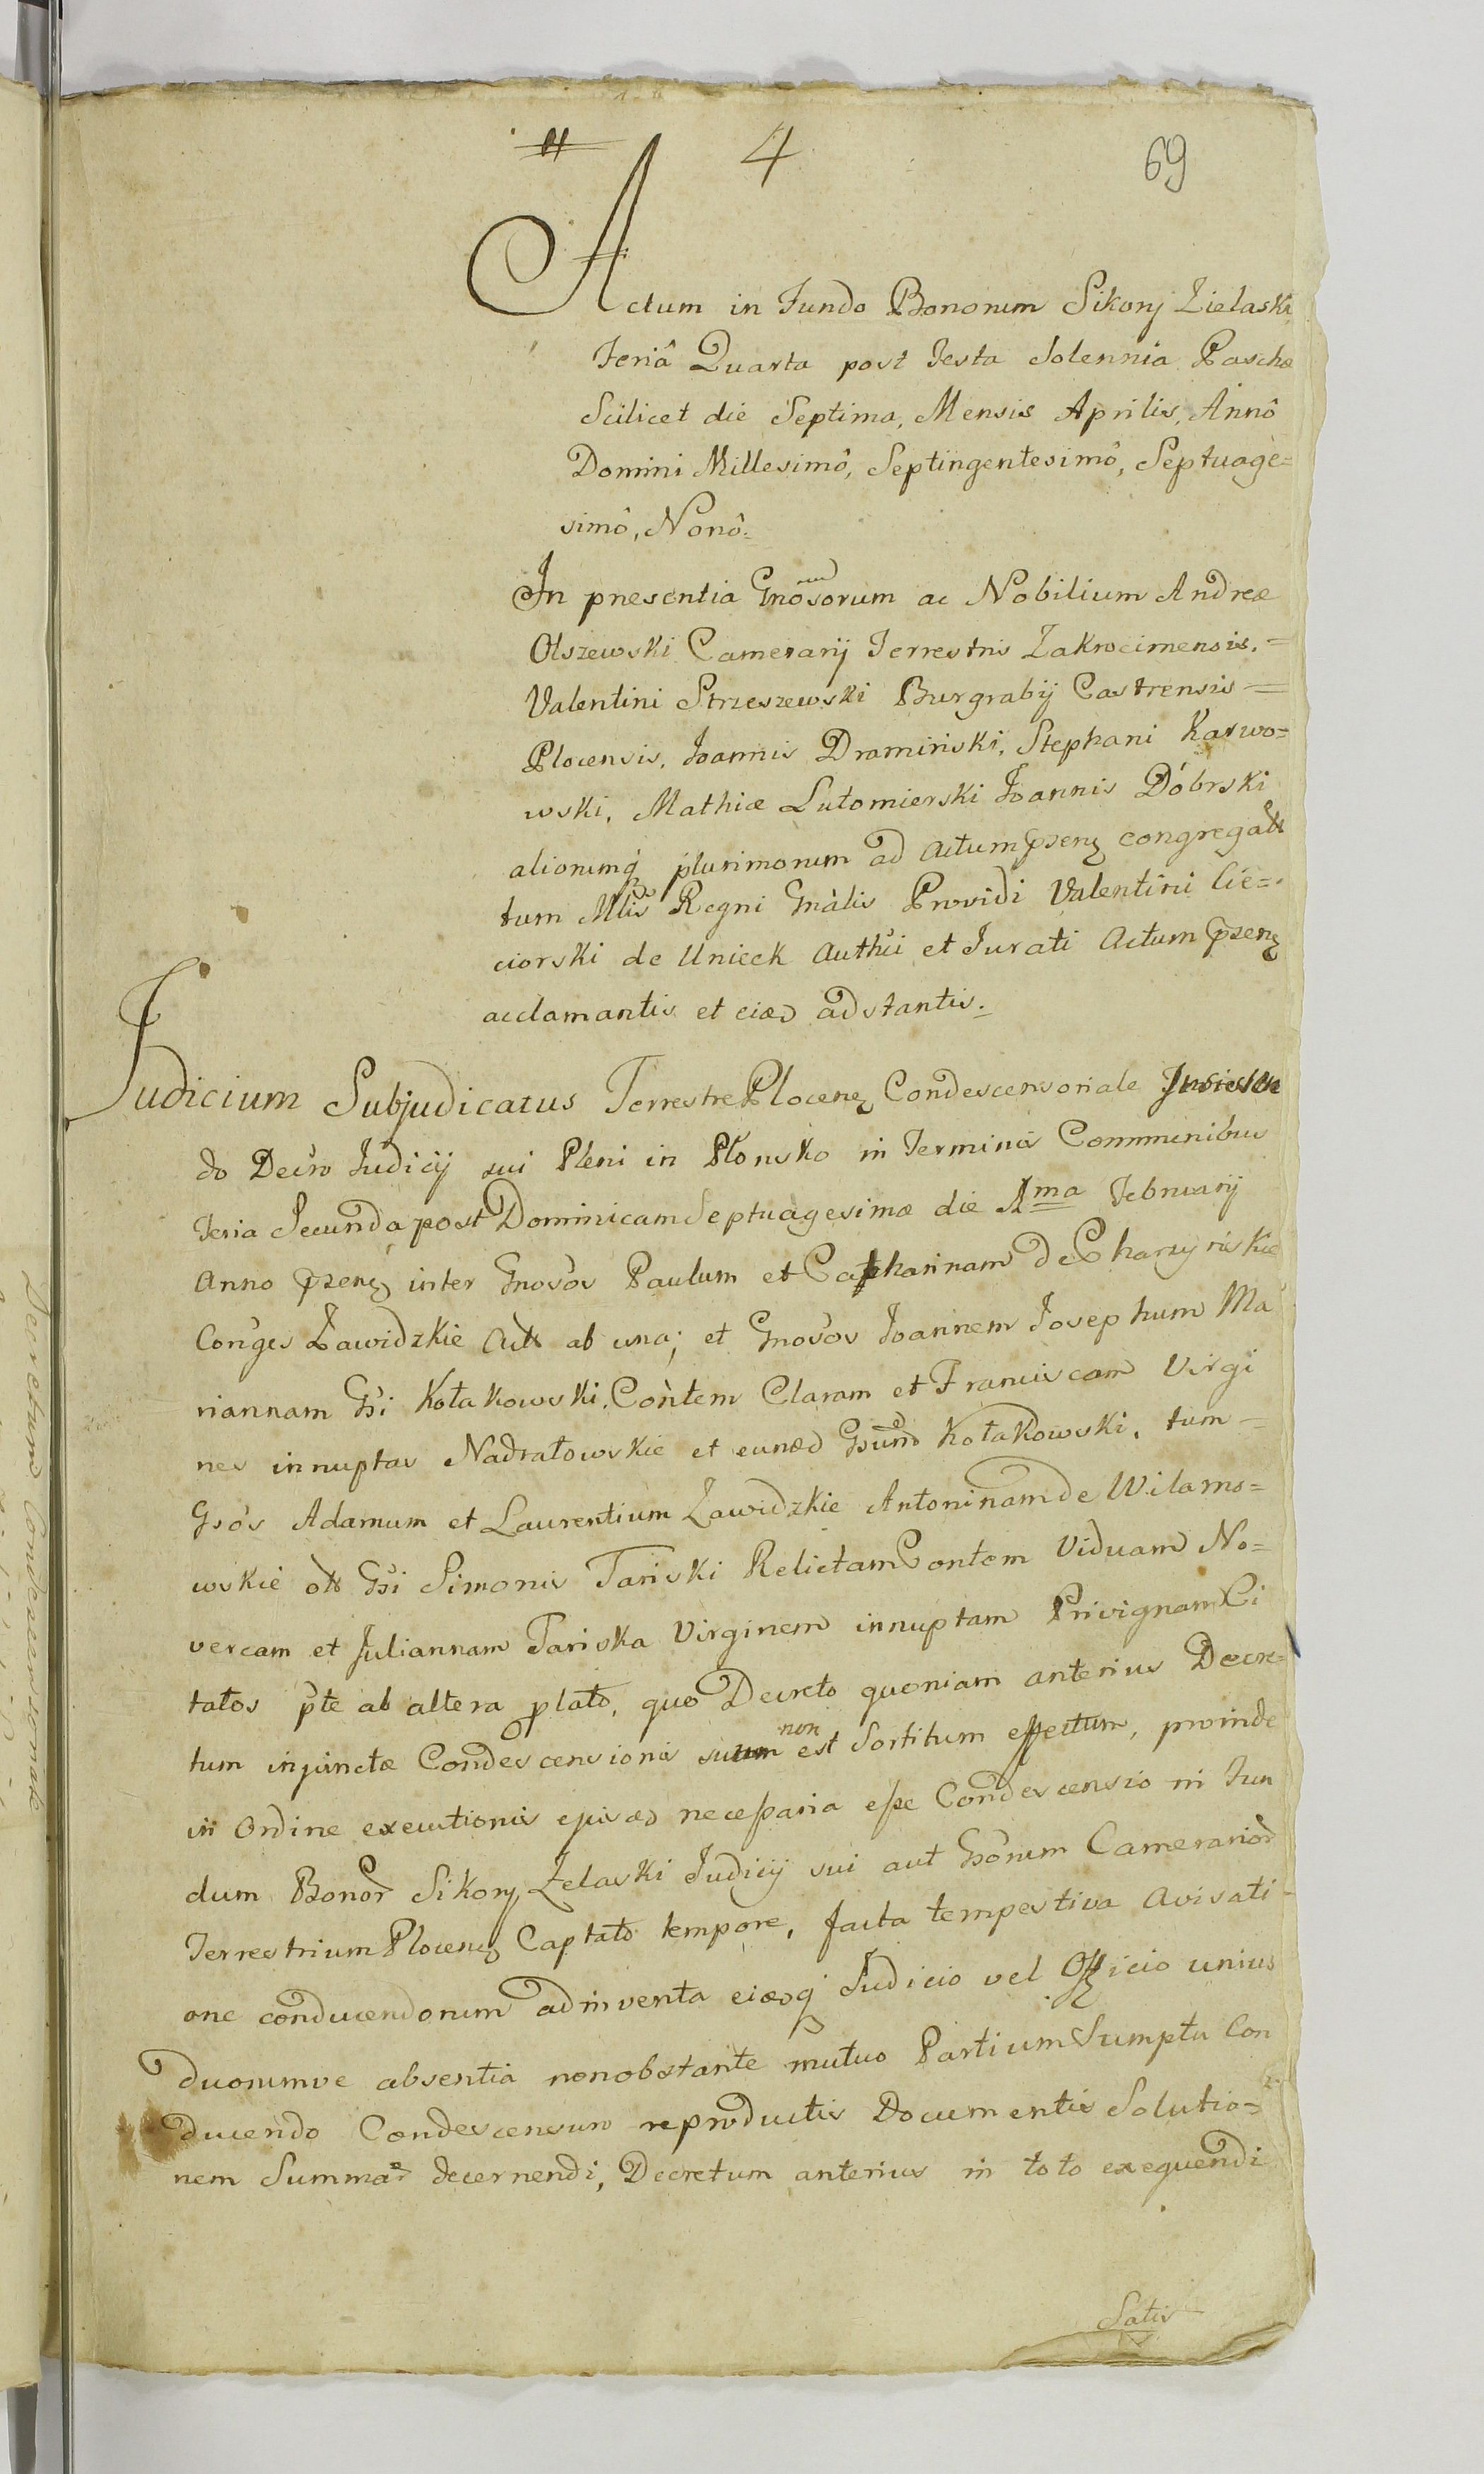 4
69
Actum in Fundo Bonorum Sikory Zielaski
Feriâ Quarta post Festa Solennia Paschæ
Scilicet die Septima, Mensis Aprilis, Annô
Domini Millesimô, Septingentesimô, Septuage=
simô, Nonô.
In presentia Gnosorum ac Nobilium Andreæ
Olszewski Camerarij Terrestris Zakrocimensis. =
Valentini Strzeszewski Burgrabij Castrensis =
Plocensis, Joannis Dramiński, Stephani Karwo=
wski, Mathiæ Lutomierski Joannis Dóbrski
aliorumq plurimorum ad Actum pzens congregat
tum Mlis Regni Gnàlis Providi Valentini Cie=
ciorski de Unieck Authci et Jurati Actum pzens
acclamantis et eid adstantis.
Judicium Subjudicatus Terrestre Plocens Condescensoriale
do Decro Judicij sui Pleni in Płonsko in Terminis Communibus
Feria Secunda post Dominicam Septuagesimæ die 1ma Februarij
Anno pzens inter Gnosos Paulum et Catharinam de Charzyńskie
Conges Zawidzkie Act ab una; et Gnosos Joannem Josephum Ma
riannam Gsi Kołakowski, Contem Claram et Franciscam Virgi
nes innuptas Nadratowskie et eund Gsum Kołakowski, tum =
Gsos Adamum et Laurentium Zawidzkie Antoninam de Wilamo=
wskie olt Gsi Simonis Tański Relictam Contem Viduam No=
vercam et Juliannam Tańska Virginem innuptam Privignam Ci
tatos pte ab altera plato, quo Decreto quoniam anterius Decre=
tum injunctæ Condescensionis suum non est Sortitum effectum, proinde
in Ordine executionis ejusd necessaria esse Condescensio in Fun
dum Bonor Sikory Zelaski Judicij sui aut Gsorum Camerarior
Terrestrium Plocens Captato tempore, facta tempestiva Avisati-
one conducendorum adinventa eidq Judicio vel Officio unius
duorumve absentia nonobstante mutuo Partium Sumptu Con
ducendo Condescensuro reproductis Documentis Solutio=
nem Summar decernendi, Decretum anterius in toto exequendi
Satis
Decretum Condescensoriale